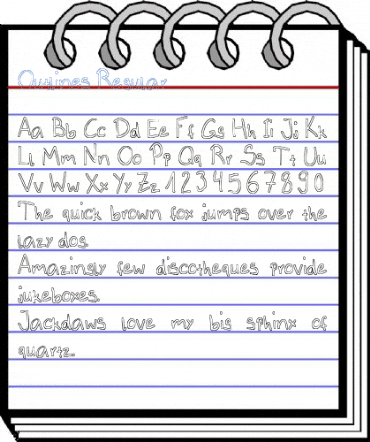 Outlines Regular
Aa Bb Cc Dd Ee Ff Gg Hh Ii Jj Kk
Ll Mm Nn Oo Pp Qq Rr Ss Tt Uu
Vv Ww Xx Yy Zz 1 2 3 4 5 6 7 8 9 0
The quick brown fox jumps over the
lazy dog.
Amazingly few discotheques provide
jukeboxes.
Jackdaws love my big sphinx of
quartz.